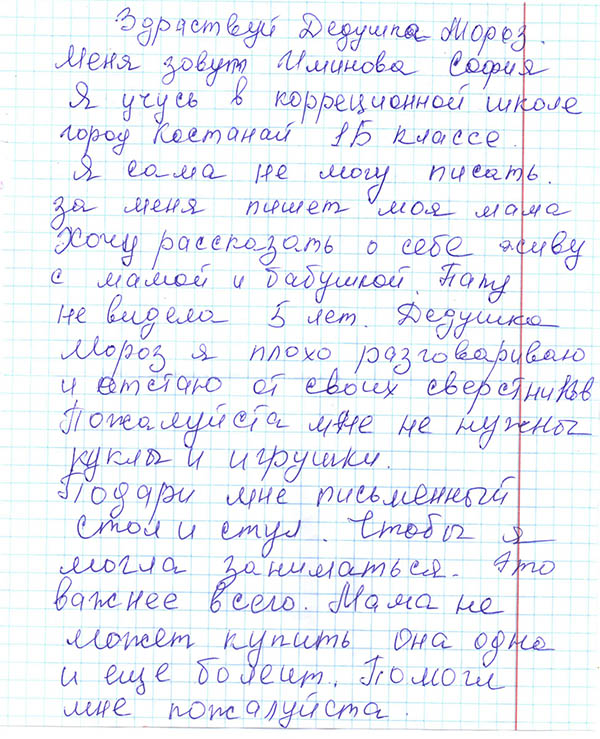 Здраствуй Дедушка Мороз.
Меня зовут Иминова София
Я учусь в корреционной школе
город Костанай 1Б классе.
Я сама не могу писать.
за меня пишет моя мама
Хочу рассказать о себе живу
с мамой и бабушкой. Папу
не видела 5 лет. Дедушка
Мороз я плохо разговариваю
и отстаю от своих сверстников
Пожалуйста мне не нужны
куклы и игрушки.
Подари мне письменный
стол и стул. Чтобы я
могла заниматься. Это
важнее всего. Мама не
может купить она одна
и еще болеит. Помоги
мне пожалуйста.